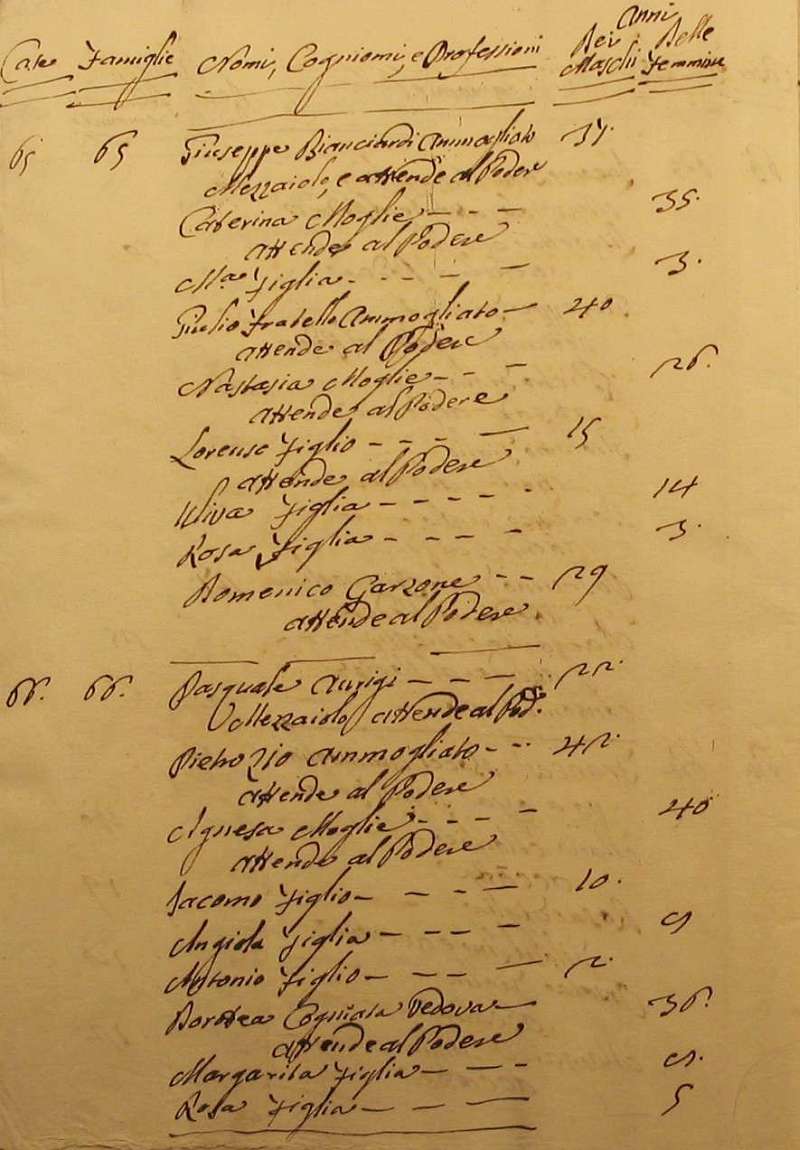 Anni
Case Famiglie Nomi, Cogniomi, e Professioni Dei Maschi Delle Femmine
65 65 Giuseppe Bianciardi Ammogliato 37.
Mezzaiolo, e attende al Podere
Caterina Moglie - - - 35.
attende al Podere
M.a Figlia - - - - 3.
Giulio Fratello Ammogliato - 40
attende al Podere
Nastasia Moglie - - - 26.
attende al Podere
Lorenso Figlio - - - - 15
attende al Podere
Uliva Figlia - - - - - 14
Rosa Figlia - - - - 3.
Domenico Garzone - - 29
attende al Podere
66. 66. Pasquale Aurigi - - - - 22.
Mezzaiolo attende al Pod.e
Pietro Zio Ammogliato - - 42.
attende al Podere
Agnesa Moglie - - - - 40
attende al Podere
Iacomo Figlio - - - - 10.
Angiola Figlia - - - - 9
Antonio Figlio - - - - 2.
Dorttea Cogniata Vedova - 36.
attende al Podere
Margarita Figlia - - - 9.
Rosa Figlia - - - 5